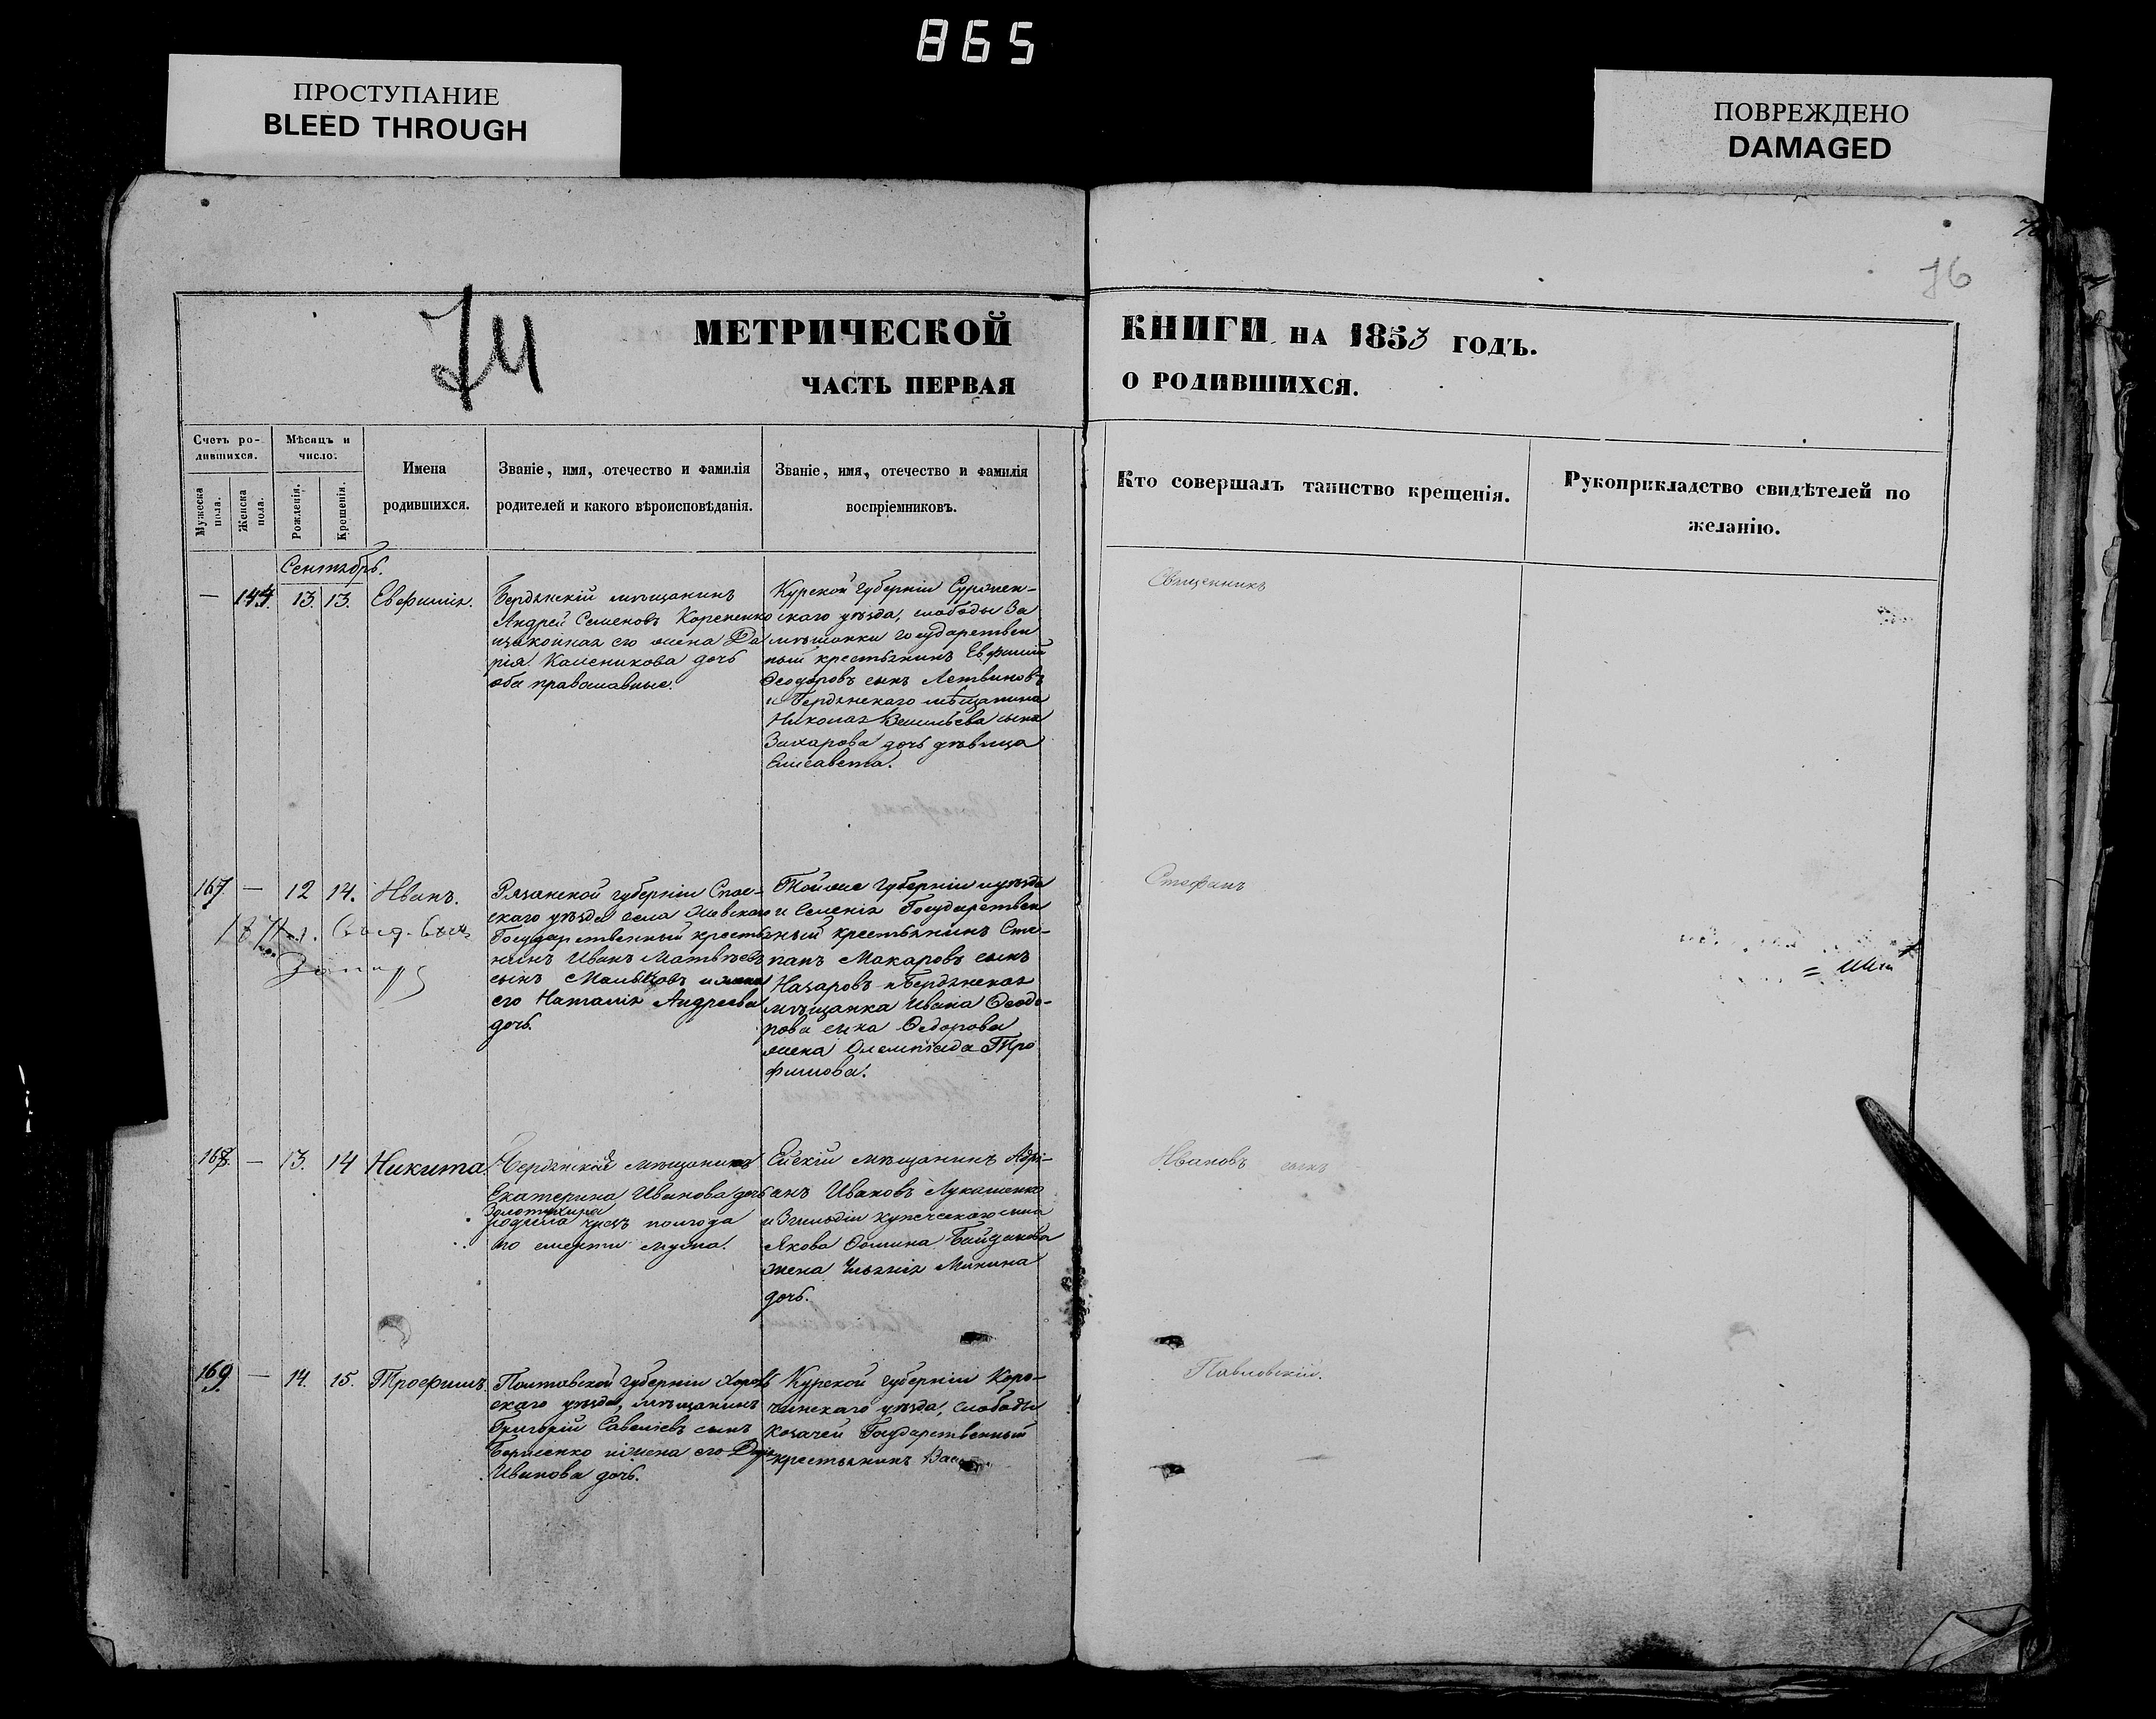 865
ПРОСТУПАНИЕ
BLEED THROUGH
ПОВРЕЖДЕНО
DAMAGED
76
74
МЕТРИЧЕСКОЙ
ЧАСТЬ ПЕРВАЯ
КНИГИ НА 1853 ГОДЪ.
О РОДИВШИХСЯ.
Счетъ ро-
дившихся.
Мужеска пола.
Женска пола.
Мѣсяцъ и
число.
Рожденія.
Крещенія.
Имена
родившихся.
Званіе, имя, отечество и фамилія
родителей и какого вѣроисповѣданія.
Званіе, имя, отечество и фамилія
воспріемниковъ.
Кто совершалъ таинство крещенія.
Рукоприкладство свидѣтелей по
желанію.
Сентябрь.
— 144. 13. 13. Евфимія.
Бердянскій мѣщанинъ
Андрей Семеновъ Корененко
и законная его жена Да
рія Каленикова дочь
оба православные.
Курской Губерніи
скаго уѣзда, слободы За
государствен
ный крестьянинъ Евфимій
Ѳеодоровъ сынъ Летвиновъ
и Бердянскаго мѣщанина
Николая Васильева сына
Захарова дочь дѣвица
Елисавета.
Священникъ
167 — 12 14. Иванъ.
Рязанской губерніи Спас-
скаго уѣзда села
Государственный крестья
нинъ Иванъ Матвѣевъ
сынъ и жена
его Наталія Андреева
дочь.
Тойже Губерніи и уѣзда
и Селенія Государствен
ный крестьянинъ Сте-
панъ Макаровъ сынъ
Назаровъ и Бердянская
мѣщанка Ивана Ѳеодо-
рова сына Ѳедорова
жена Олемпіада Тро
фимова.
Стефанъ
168. — 13. 14 Никита
Бердянская мѣщанка
Екатерина Иванова дочь
Золотухина
родила чрезъ полгода
по смерти мужа.
Ейскій мѣщанинъ Адрі-
анъ Ивановъ Лукашенко
и 3 гильдіи купеческаго сына
Якова Ѳомина
жена Ульянія Минина
дочь.
Ивановъ сынъ
169 — 14. 15. Трофимъ.
Полтавской губерніи Хороль
скаго уѣзда, мѣщанинъ
Григорій Савеліевъ сынъ
Борисенко и жена его
Иванова дочь.
Курской губерніи Коро-
чинскаго уѣзда, слободы
Козачей Государственный
крестьянинъ
Павловскій.